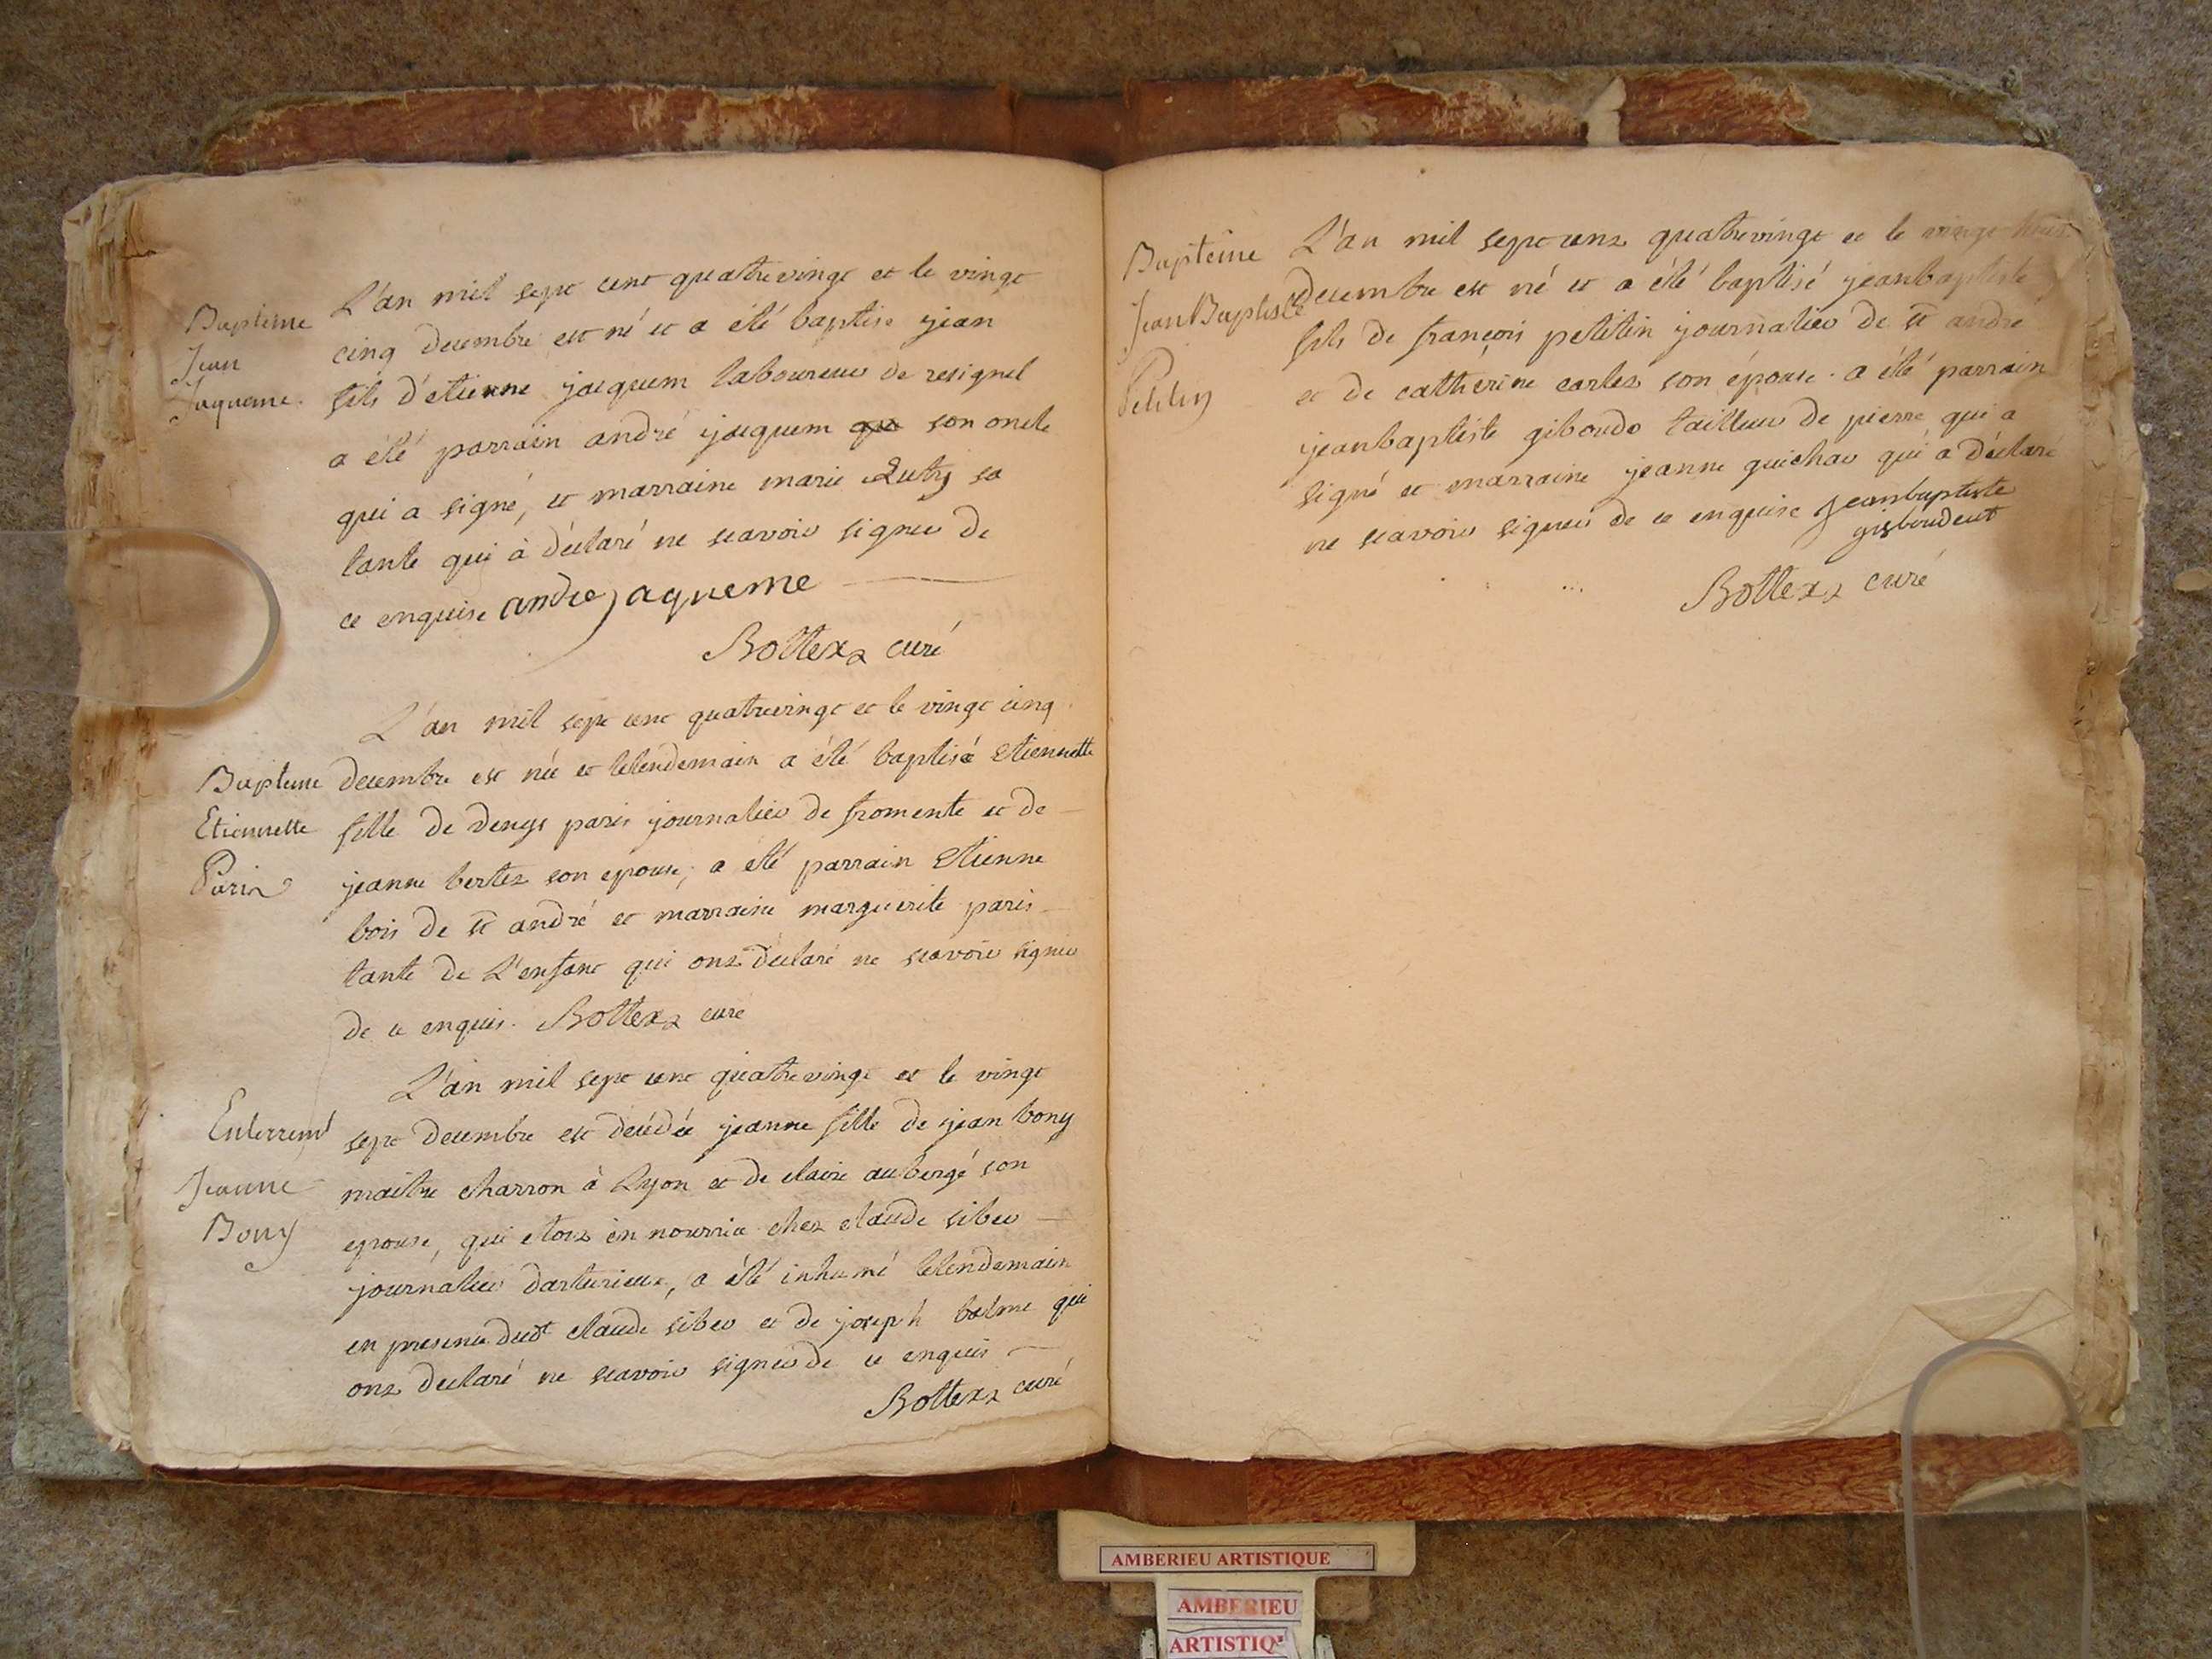 Bapteme
Jean
Jaqueme.
L'an mil sept cent quatrevingt et le vingt
cinq decembre est né et a été baptisé jean
fils d'étienne jacquem laboureur de resignel
a été parrain andré jacquem son oncle
qui a signé, et marraine marie sa
tante qui à déclaré ne scavoir signer de
ce enquise andre jaqueme
Bottex curé
Bapteme
Etiennette
Paris
L'an mil sept cent quatrevingt et le vingt cinq
decembre est née et lelendemain a été baptisée Etiennette
fille de denys paris journalier de fromente et de
jeanne bertez son epouse; a été parrain Etienne
bois de st andré et marraine marguerite paris
tante de L'enfant qui ont déclaré ne scavoir signer
de ce enquis. Bottex curé
Enterremt
Jeanne
Bony
L'an mil sept cent quatrevingt et le vingt
sept decembre est décédée jeanne fille de jean bony
maitre charron à Lyon et de claire aubergé son
epouse, qui etoit en nourrice chez claude siber
journalier, a été inhumé lelendemain
en presence dudt claude siber et de joseph balme qui
ont declaré ne scavoir signer de ce enquis
Bottex curé
Baptême
Jean Baptiste
Petitin
L'an mil sept cent quatrevingt et le vingt
decembre est né et a été baptisé jeanbaptiste
fils de françois petitin journalier de st andre
et de catherine carlez son épouse. a été parrain
jeanbaptiste giboudo tailleur de pierre qui a
signé et marraine jeanne guichar qui a déclaré
ne scavoir signer de ce enquise jeanbaptiste
gisboudeut
Bottex curé
AMBERIEU ARTISTIQUE
AMBERIEU
ARTISTIQ